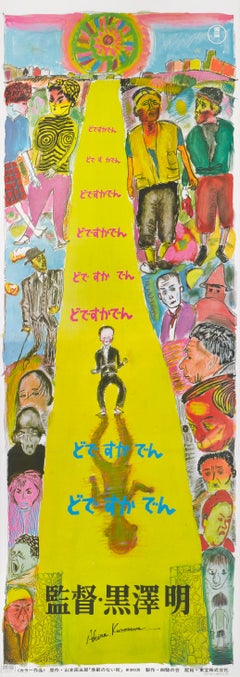 どですかでん
どですかでん
どですかでん
どですかでん
どですかでん
どですかでん
どですかでん
どですかでん
監督・黒澤明
Akira Kurosawa